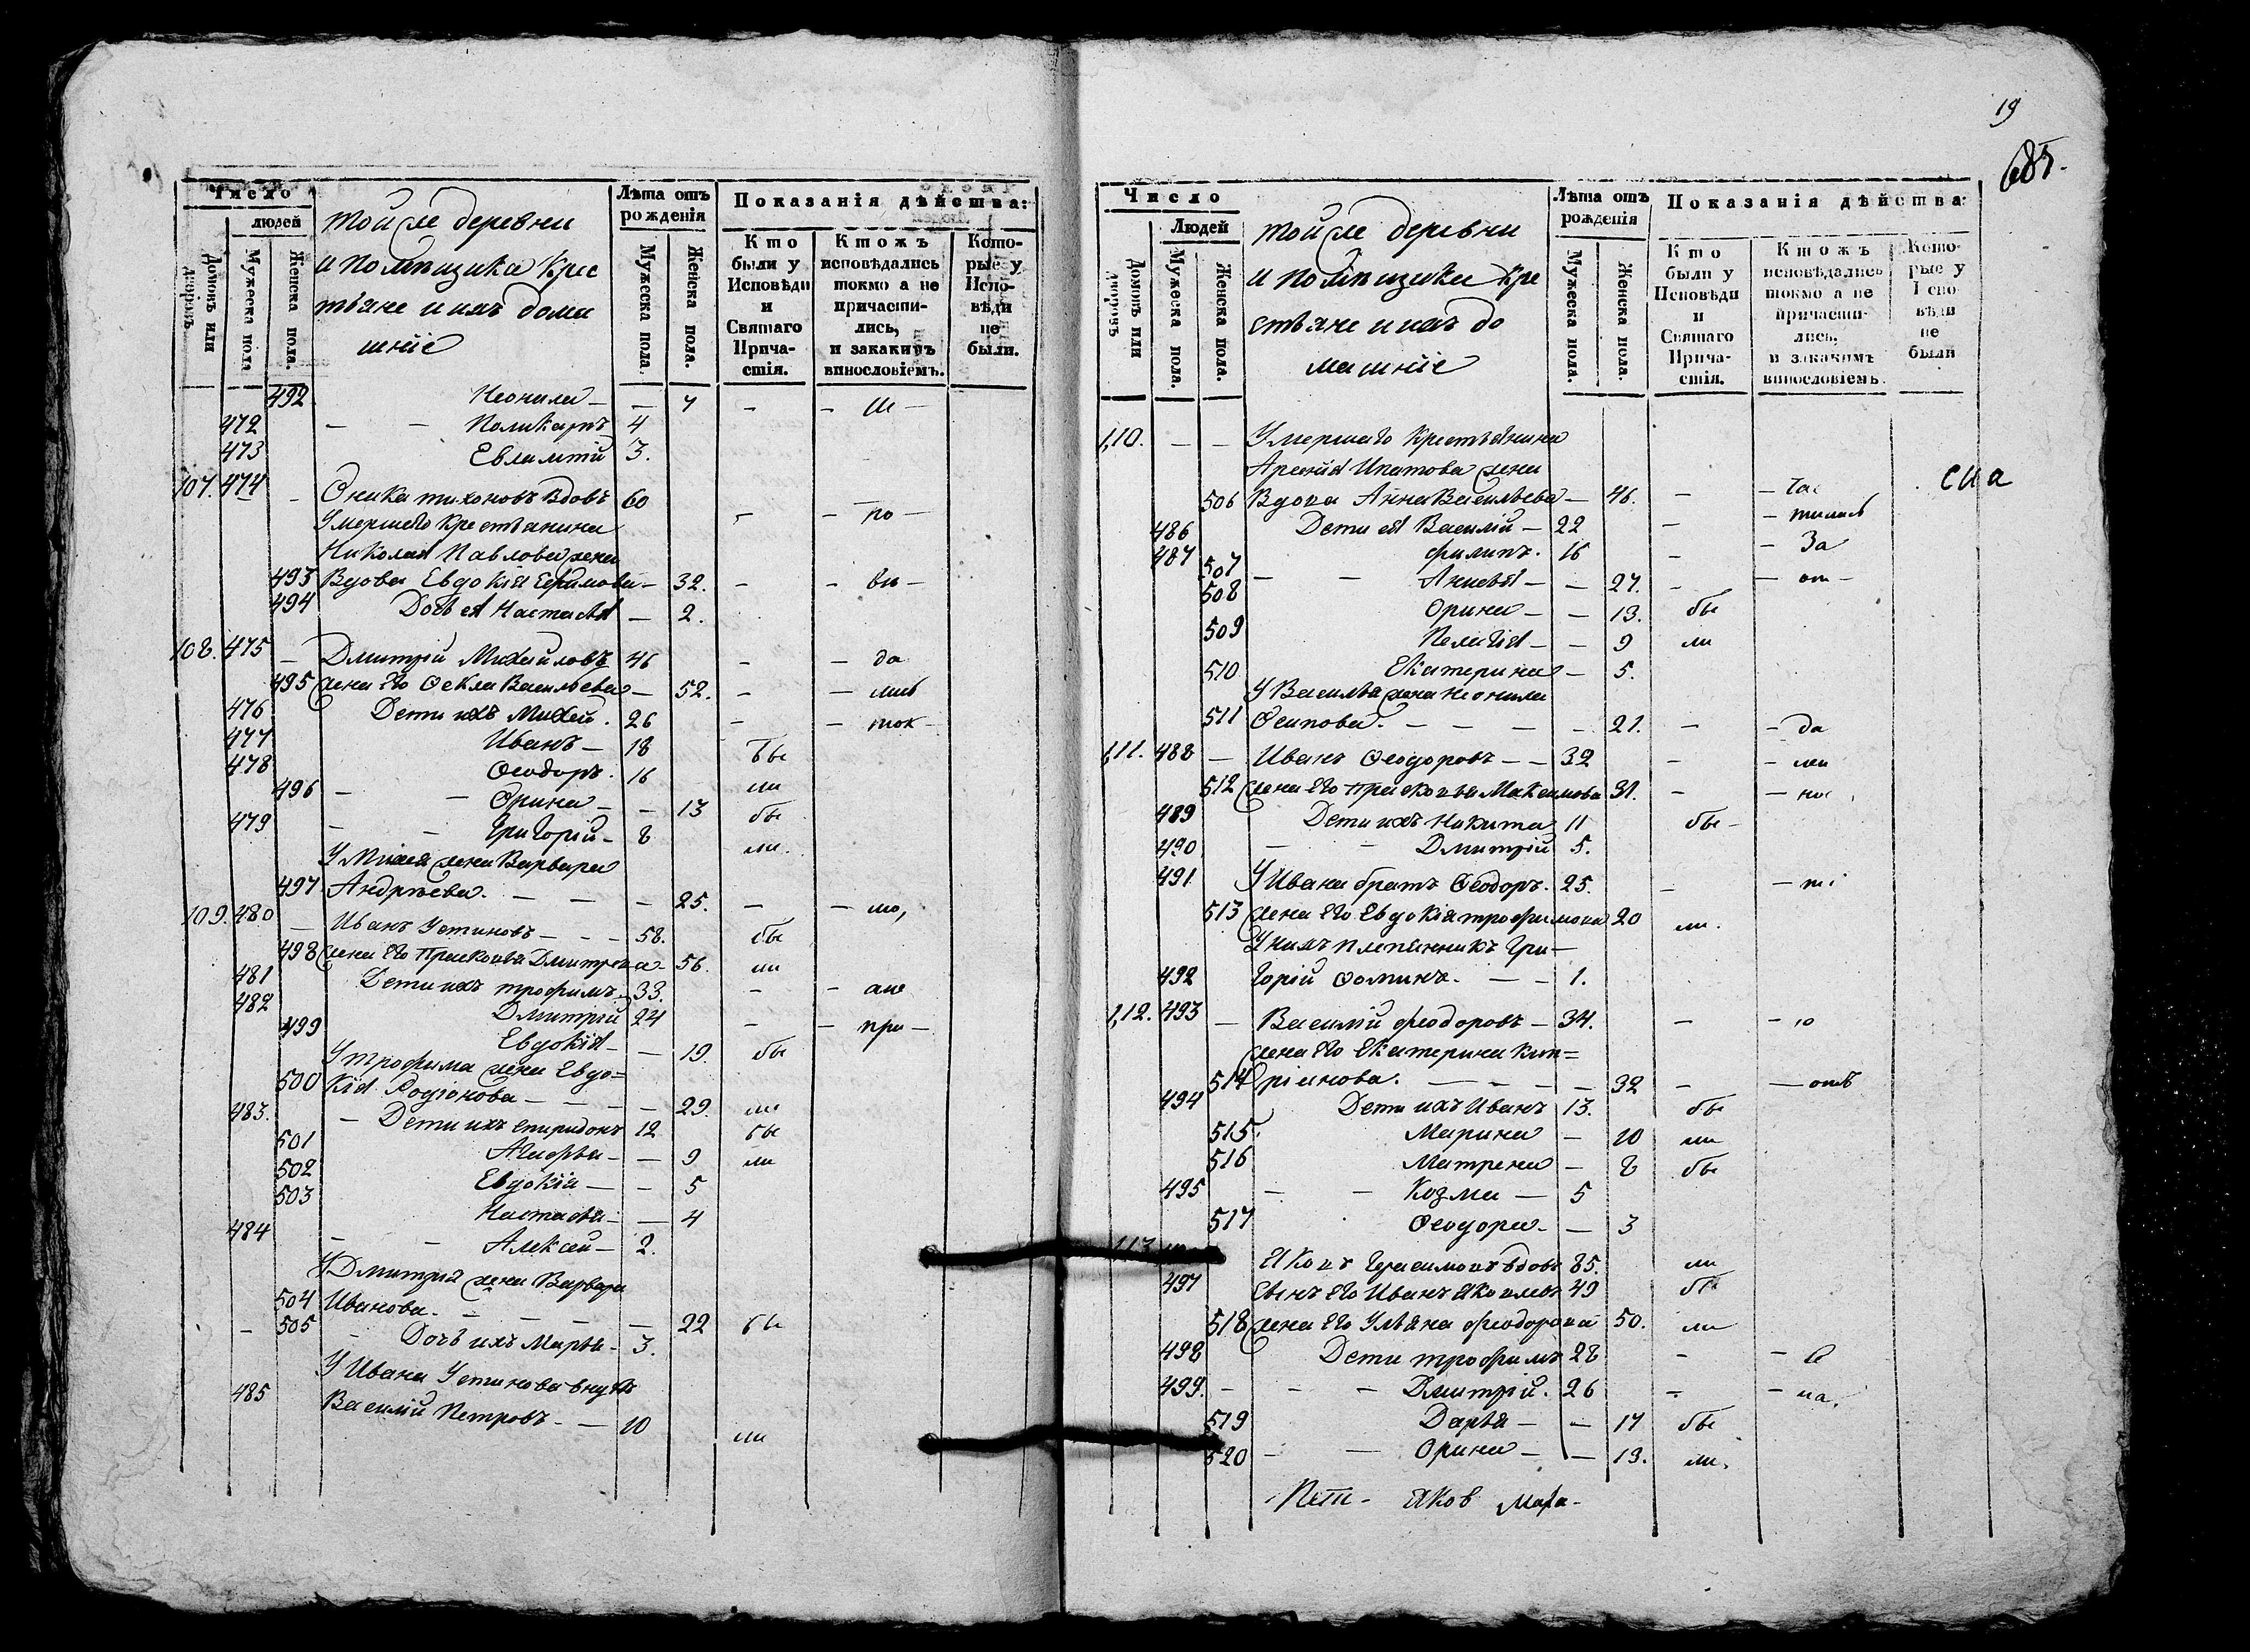 Число
людей
Домовъ или дворовъ.
Мужеска пола
Женска пола.
той же деревни
и помѣщика крес
тьяне и ихъ дома
шніе
Лѣта отъ рожденія
Мужеска пола.
Женска пола.
Показанія дѣйства:
Кто были у Исповѣди и Святаго Причастія.
Ктожъ исповѣдались токмо а не причастились, и закакимъ винословіемъ.
Которые у Исповѣди не были.
492 Неонила — — 7 — —
472 — — Поликарпъ 4
473 Евлампій 3.
107. 474 — Оника тихоновъ вдовъ 60
Умершего крестьянина — — по —
Николая Павлова жена
493 Вдова Евдокія Ефимова — 32. — — ви —
494 Дочь ея Настасья — 2.
108. 475 — Дмитрій Михайловъ 46 — — да
495 жена его Ѳекла Васильева — 52. — — лись
476 Дети ихъ Михей. 26 — — ток —
477 Иванъ — 18 бы
478 Ѳеодоръ. 16 ли
496 — — Орина — — 13 бы
479 — — Григорій — 8 ли.
У Михея жена Варвара
497 Андреева. — — — 25. — — мо,
109. 480 — Иванъ Устиновъ — — — 58. бы
498 жена его Прасковья Дмитрева — 56. ли
481 Дети ихъ трофимъ 33. — — ане
482 Дмитрій 24 — — при —
499 Евдокія — — 19. бы
У трофима жена Евдо=
500 кія Родіонова — — — — 29. ли
483. — Дети ихъ спиридонъ 12 бы
501 Агафья — — 9 ли
502 Евдокія — — 5
503 Настасья — — 4
484 — — Алексей — 2.
У Дмитрія жена Варвара
504 Иванова. — — — — 22 бы
— 505 — Дочь ихъ Марья — 3.
У Ивана Устинова внукъ
485 Василій Петровъ — — 10 ли
19
685.
Число
Людей
Домовъ или дворовъ
Мужеска пола.
Женска пола.
той же деревни
и помѣщика кре
стьяне и ихъ до
машніе
Лѣта отъ рожденія
Мужеска пола.
Женска пола.
Показанія дѣйства:
Кто были у Исповѣди и Святаго Причастія.
Ктожъ исповѣдались токмо а не причастились, и закакимъ винословіемъ.
Которые у Исповѣди не были
110. — — Умершего крестьянина
Арсенія Ипатова жена
506 Вдова Анна Васильева — 46. —
486 Дети ея Василій — 22 — — тились
487 филипъ. 16 — — За
507 — — — — 27. — — от —
508 Орина — — 13. бы
509 Пелагія — — 9 ли
510 Екатерина — 5.
У Василья жена Неонила
511 Осипова. — — — — 21. — — да
111. 488 — Иванъ Ѳеодоровъ — — 32 —
512 жена его прасковья Максимова 31. —
489 Дети ихъ Никита 11 бы —
490 — — Дмитрій 5.
491 У Ивана братъ Ѳеодоръ. 25. —
513 жена его Евдокія трофимова 20 ли.
У нихъ племянникъ Гри—
492 горій Ѳоминъ. — — 1.
112. 493 — Василій феодоровъ — 34. — — ю
жена его Екатерина кип=
514 ріянова. — — — — 32 — — отъ
494 Дети ихъ Иванъ 13. бы
515. Марина — 10 ли
516 Матрена — 8 бы
495 — — Козма — 5
517 Ѳеодора — — 3
113. Яковъ Герасимовъ вдовъ 85. ли
497 Сынъ его Иванъ Яковлевъ 49 бы
518 жена его Ульяна феодорова 50. ли
498 Дети трофимъ 28 —
499. — — — Дмитрій. 26 — — па.
519 Дарья — — 17 бы
520 — — Орина — — 13. ли.
Яков